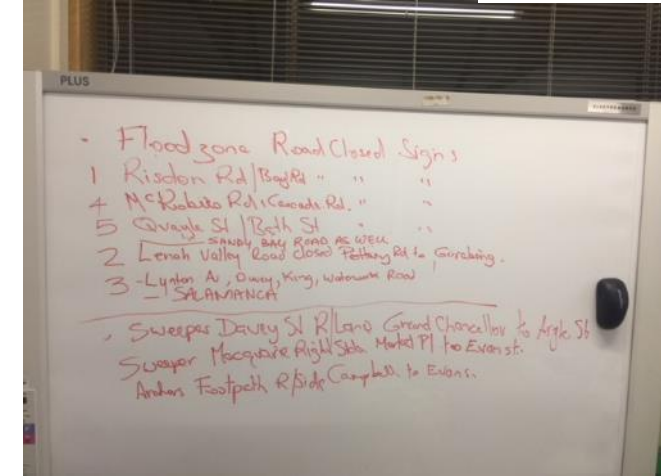 PLUS
· Floodzone Road Closed Signs
1 Risdon Rd/Bay Rd " " "
4 McRobies Rd, Cascade Rd. " "
5 Quayle St/Bath St " "
SANDY BAY ROAD AS WELL
2 Lenah Valley Road Closed Pottery Rd to
3 - Lynton Av, Davey, King, Waterworks Road
- SALAMANCA
· Sweeper Davey St R/Lane Grand Chancellor to Argle St
Sweeper Macquarie Right Side Market Pl to Evans st.
Footpath R/Side Campbell to Evans.